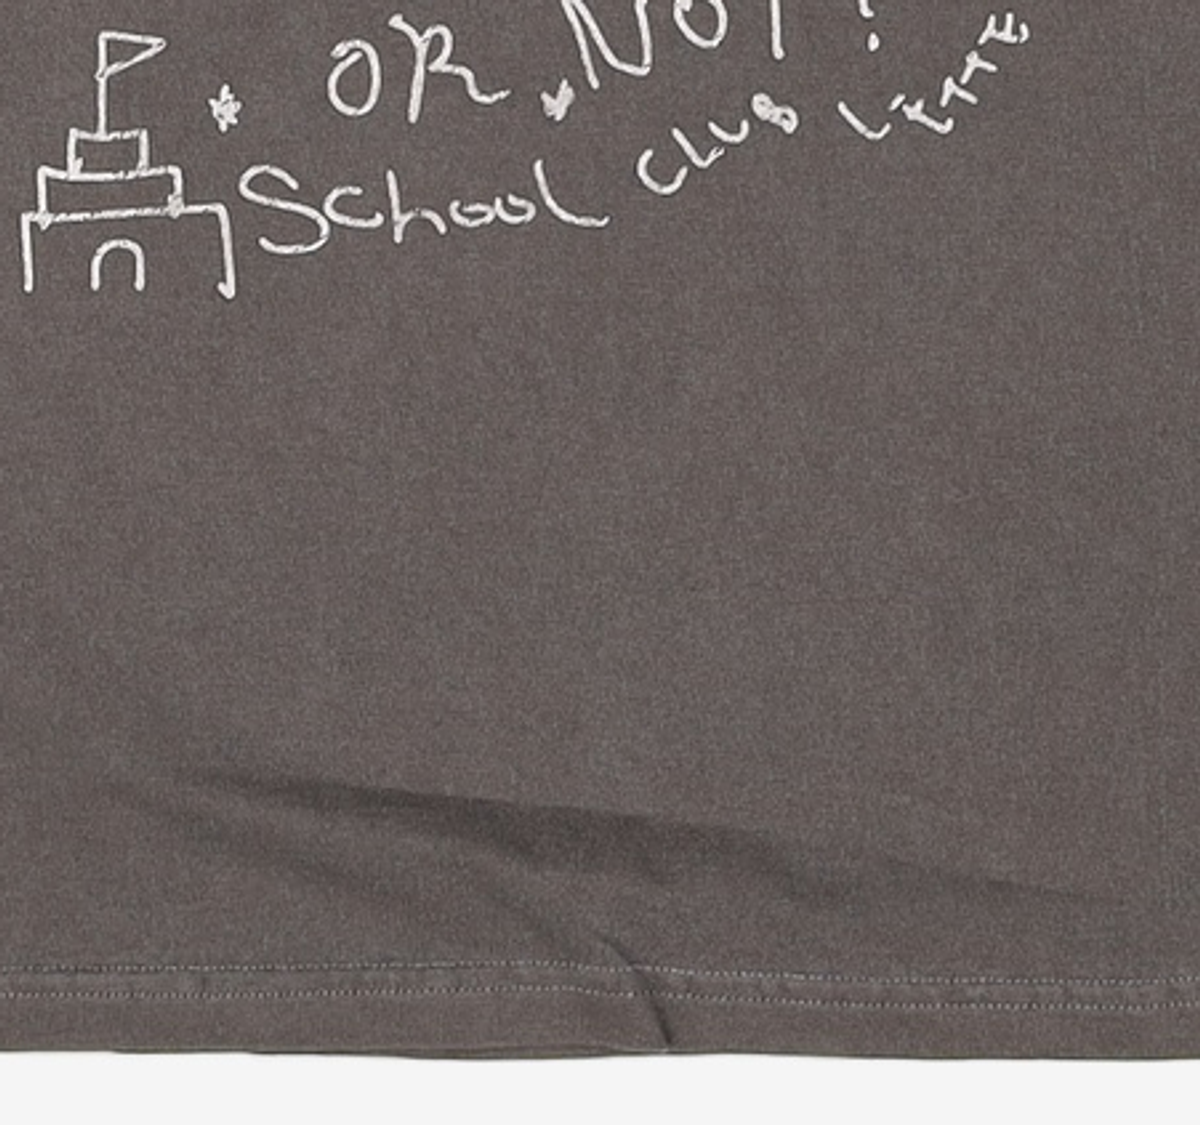 OR NOT?
School CLUB LETTE